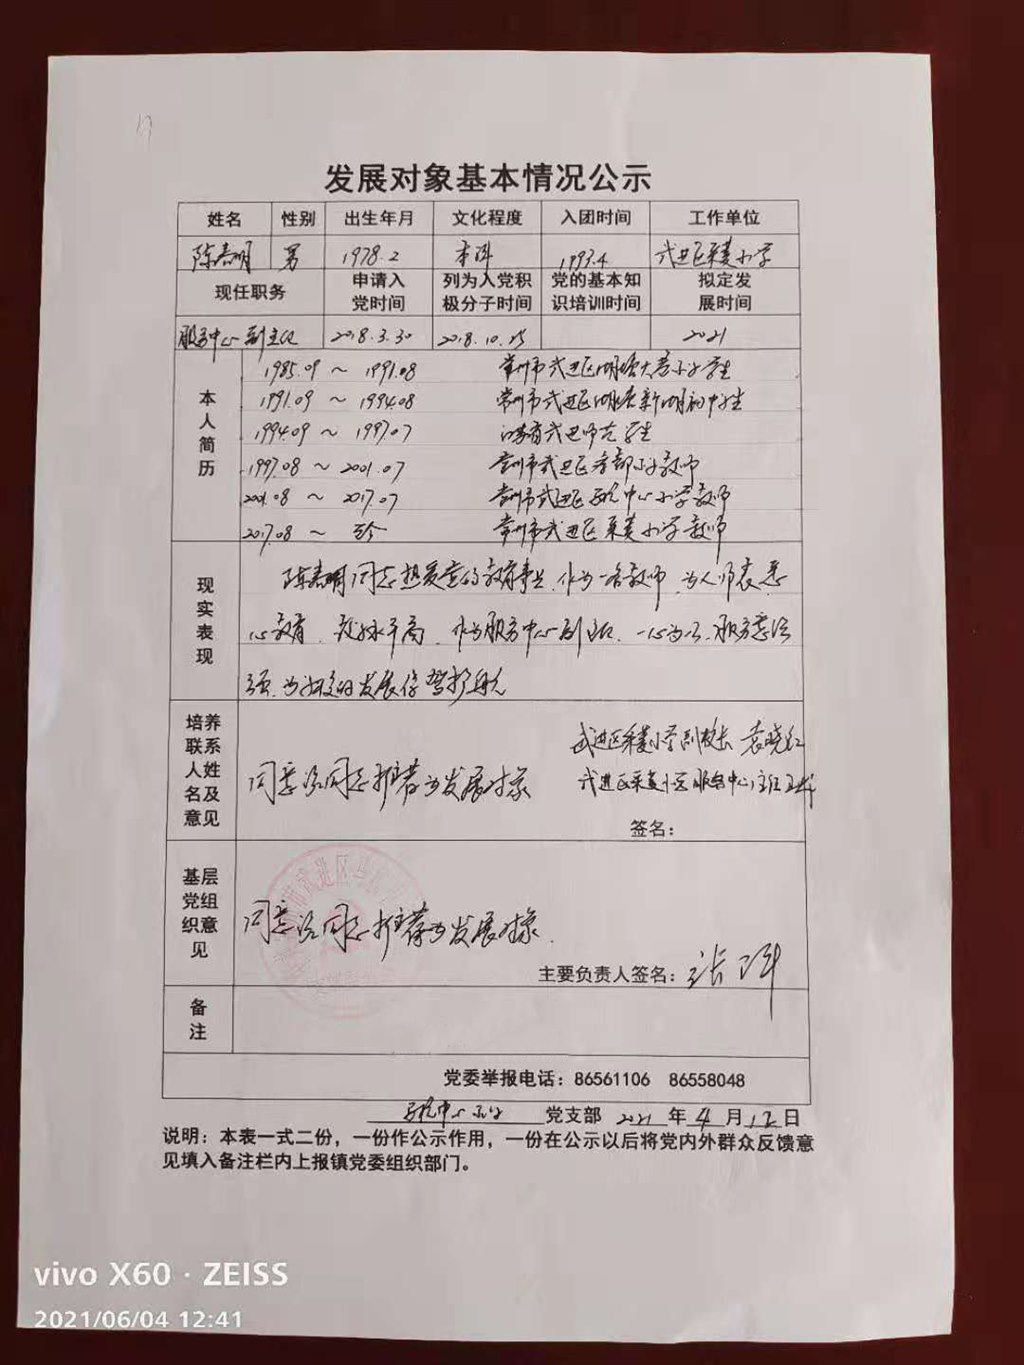 发展对象基本情况公示
姓名 性别 出生年月 文化程度 入团时间 工作单位
陈春明 男 1978.2 本科 1993.4 武进区莱蒙小学
现任职务 申请入党时间 列为入党积极分子时间 党的基本知识培训时间 拟定发展时间
服务中心副主任 2018.3.30 2018.10.25 2021
本人简历
1985.09 ~ 1991.08 常州市武进区湖塘大巷小学学生
1991.09 ~ 1994.08 常州市武进区湖塘新湖初中学生
1994.09 ~ 1997.07 江苏省武进师范学生
1997.08 ~ 2001.07 常州市武进区寺部小学教师
2001.08 ~ 2017.07 常州市武进区马杭中心小学教师
2017.08 ~ 至今 常州市武进区莱蒙小学教师
现实表现
陈春明同志热爱党的教育事业,作为一名教师,为人师表,悉
心教育,教学水平高,作为服务中心副主任,一心为公,服务意识
强,为学校的发展保驾护航
培养联系人姓名及意见
武进区莱蒙小学副校长 袁晓红
同意该同志推荐为发展对象
武进区莱蒙小学服务中心主任
签名:
基层党组织意见
同意该同志推荐为发展对象.
主要负责人签名:
备注
党委举报电话:86561106 86558048
马杭中心小学 党支部 2021 年 4 月 12 日
说明:本表一式二份,一份作公示作用,一份在公示以后将党内外群众反馈意
见填入备注栏内上报镇党委组织部门。
vivo X60 · ZEISS
2021/06/04 12:41